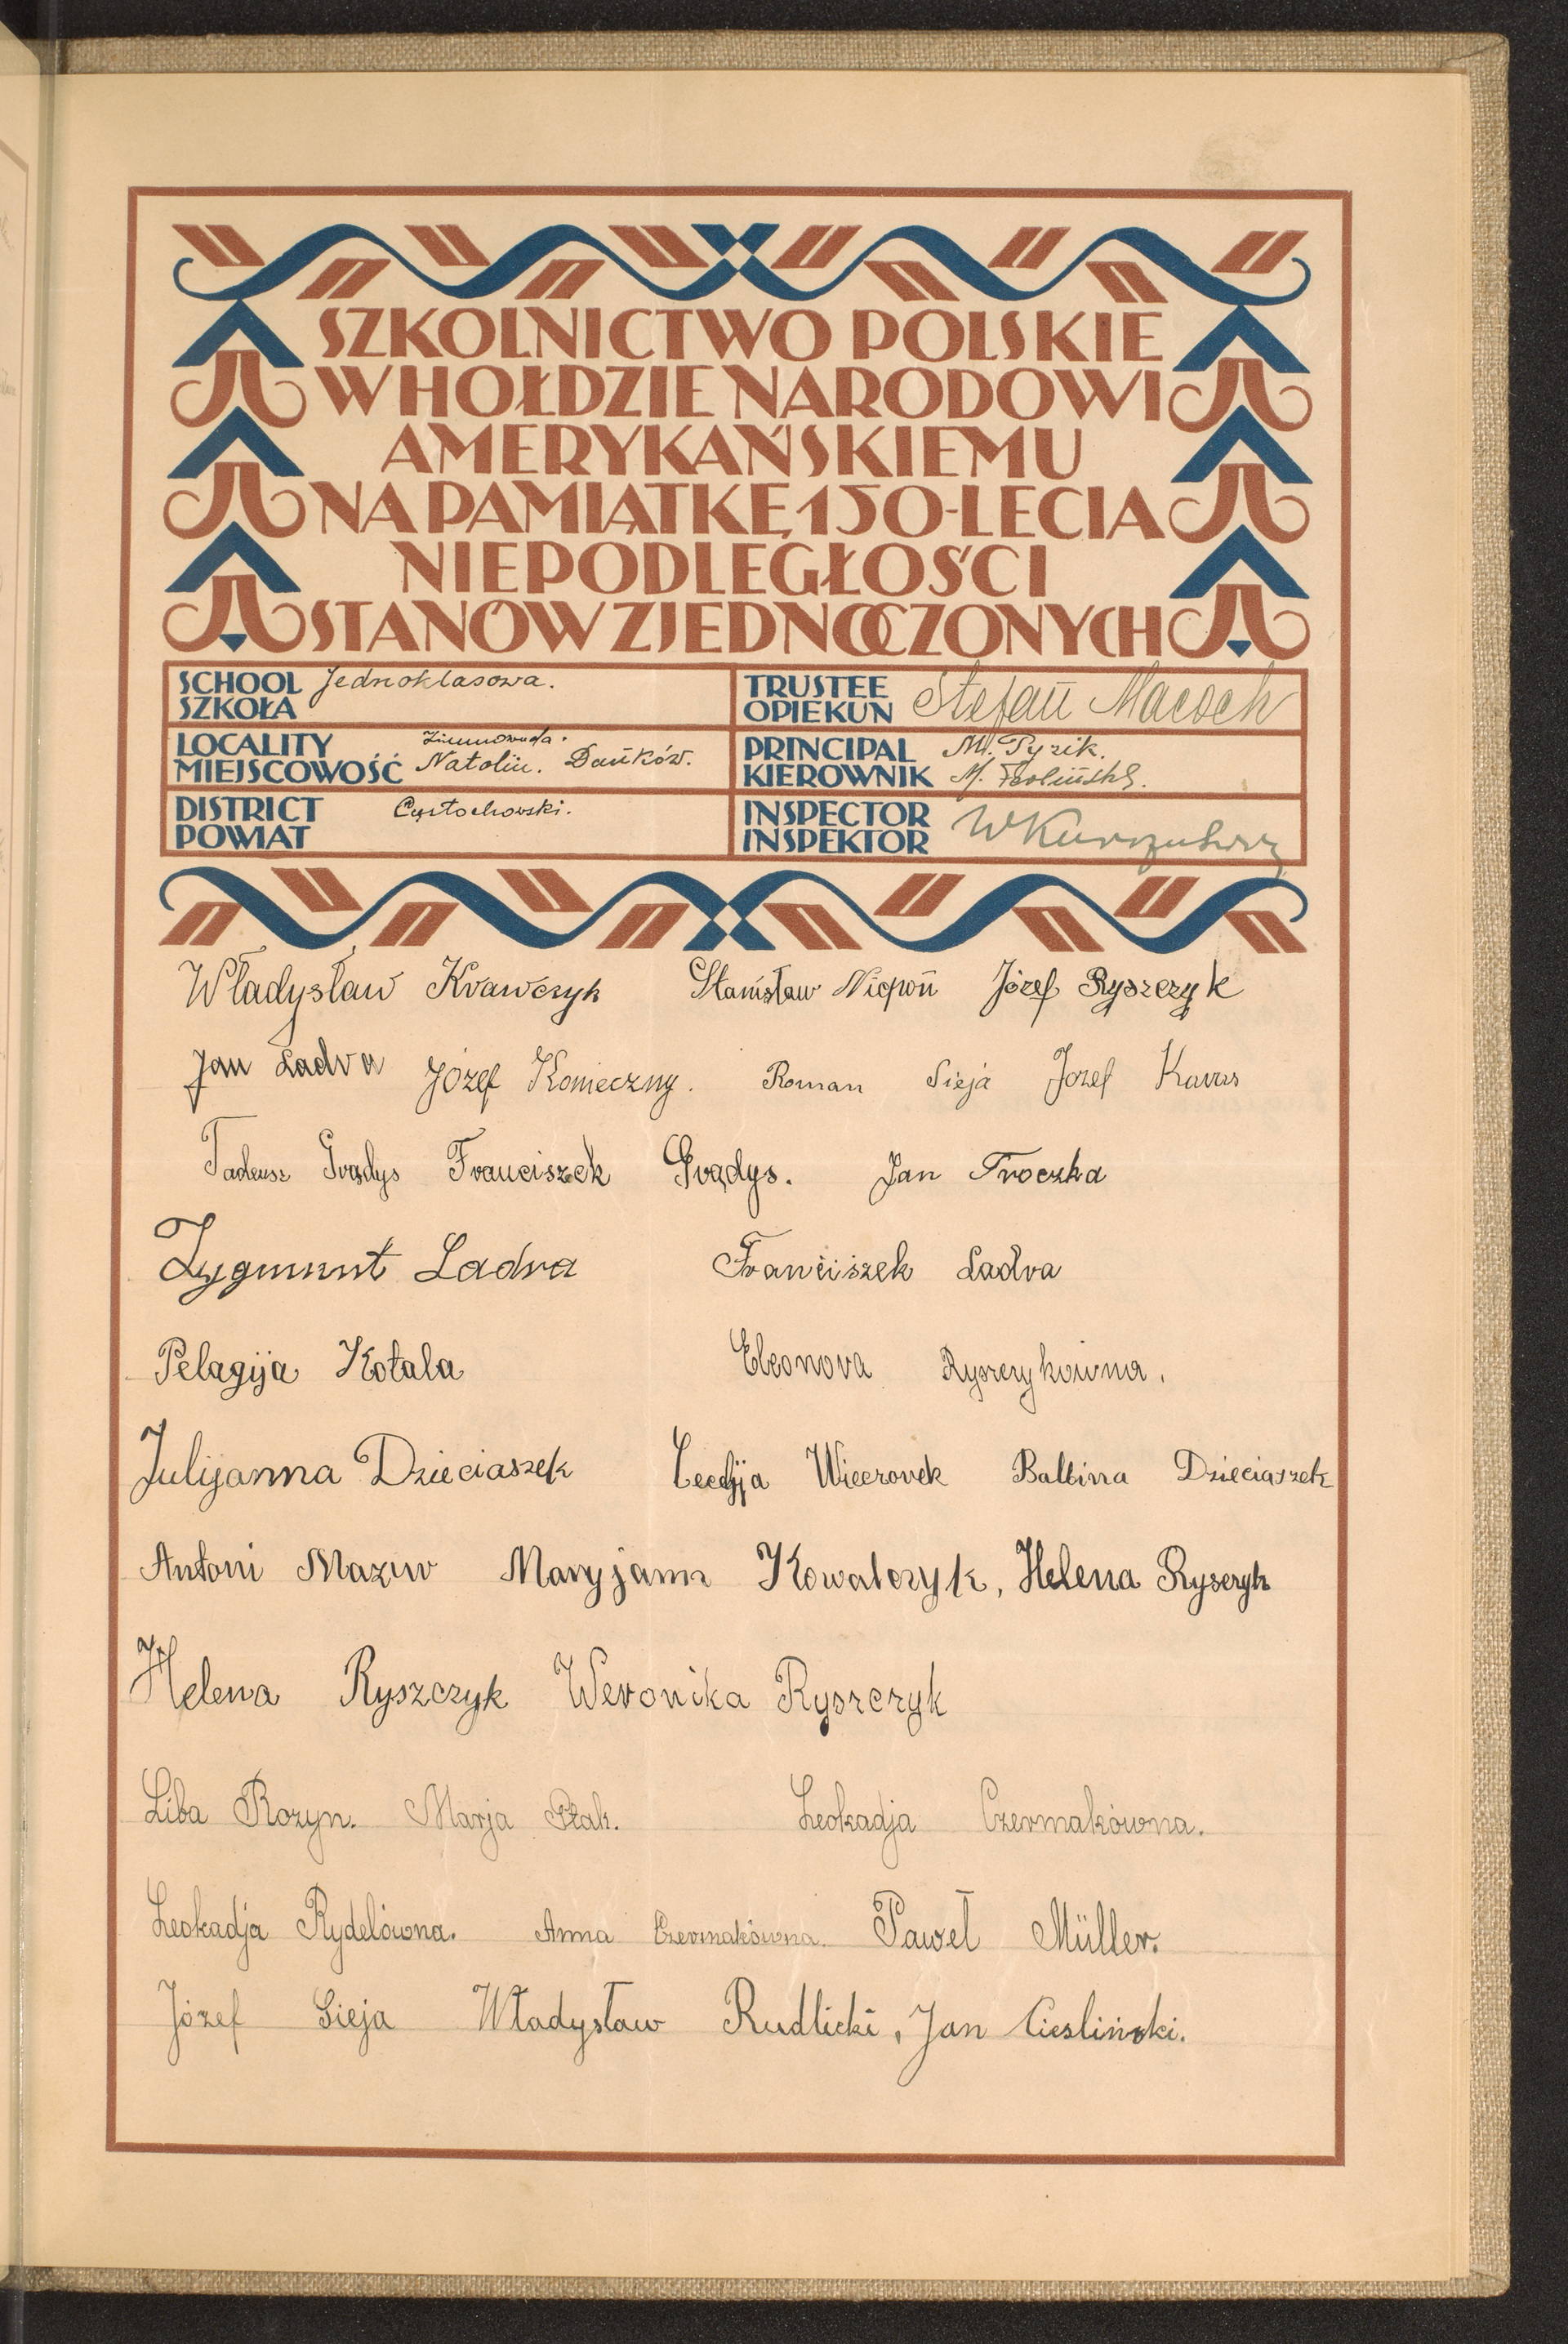 SZKOLNICTWO POLSKIE
W HOŁDZIE NARODOWI
AMERYKAŃSKIEMU
NA PAMIĄTKĘ 150-LECIA
NIEPODLEGŁOŚCI
STANÓW ZJEDNOCZONYCH
SCHOOL Jednoklasowa.
SZKOŁA
TRUSTEE Stefan Macoch
OPIEKUN
LOCALITY Zimnowoda.
MIEJSCOWOŚĆ Natolin. Dańków.
PRINCIPAL M. Pyzik.
KIEROWNIK M.
DISTRICT Częstochowski.
POWIAT
INSPECTOR
INSPEKTOR
Władysław Krawczyk Stanisław Niepoń Józef Ryszczyk
Jan Ladra Józef Konieczny. Roman Sieja Jozef Kurus
Tadeusz Grądys Franciszek Grądys. Jan Froczka
Zygmunt Ladra Franciszek Ladra
Pelagija Kotala Eleonora Ryszczykówna.
Julijanna Dzieciaszek Cecylja Wieczorek Balbina Dzieciaszek
Antoni Mazur Maryjann Kowalczyk, Helena Rysczyk
Helena Ryszczyk Weronika Ryszczyk
Liba Rozyn. Marja Ptak. Leokadja Czermakówna.
Leokadja Rydelówna. Anna Czermakówna. Paweł Müller.
Józef Sieja Władysław Rudlicki, Jan Cieslinski.